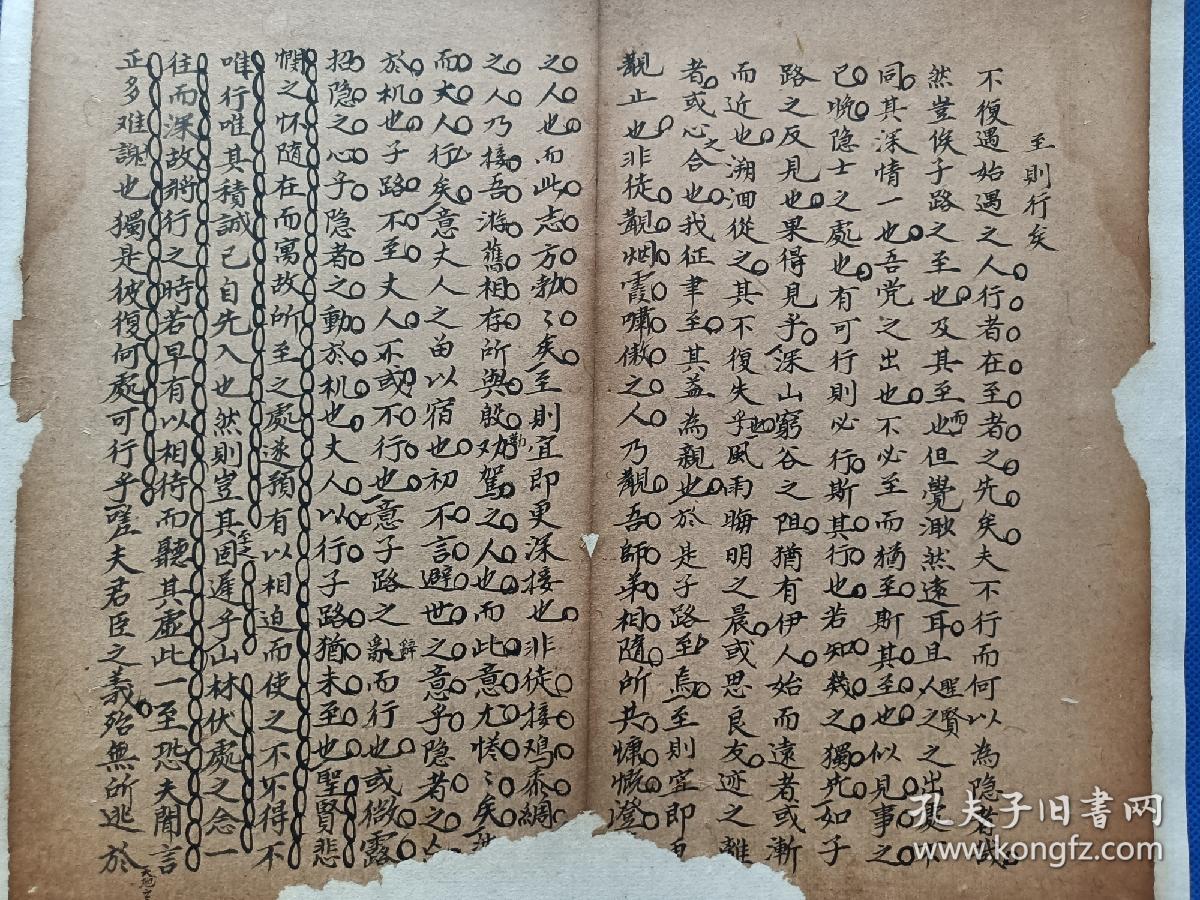 至則行矣
不復遇始遇之人行者在至者之先矣夫不行而何以為隐者
然豈俟子路之至也及其至也而但覺澉然遠耳且人聖賢之之出處不
同其深情一也吾党之出也不必至而猶至斯其至也似見事之
已晩隐士之處也有可行則必行斯其行也若知幾之獨先如子
路之反見也果得見乎深山窮谷之阻猶有伊人始而遠者或漸
而近也溯洄從之其不復失乎也風雨晦明之晨或思良友迹之離
者或心之合也我征聿至其益為親也於是子路至焉至則宜即
觀止也非徒觀烟霞嘯傲之人乃觀吾師弟相隨所共慷慨澄
之人也而此志方勃〻矣至則宜即更深接也非徒接鸡黍綢
之人乃接吾游舊相存所與殷劝勤駕之人也而此意尤惓〻矣
而丈人行矣意丈人之留以宿也初不言避世之意乎隐者之
於机也子路不至丈人亦或不行也意子路之辭而行也或微露
招隐之心乎隐者之動於机也丈人以行子路猶未至也聖賢悲
憫之怀隨在而寓故所至之處遂預有以相迫而使之不得不
唯行唯其積誠已自先入也然則豈其至之固遲乎山林伏處之念一
往而深故將行之時若早有以相待而聽其虛此一至恐夫聞言
正多难謝也獨是彼復何處可行乎嗟夫君臣之義殆無所逃於
孔夫子旧书网
www.kongfz.com